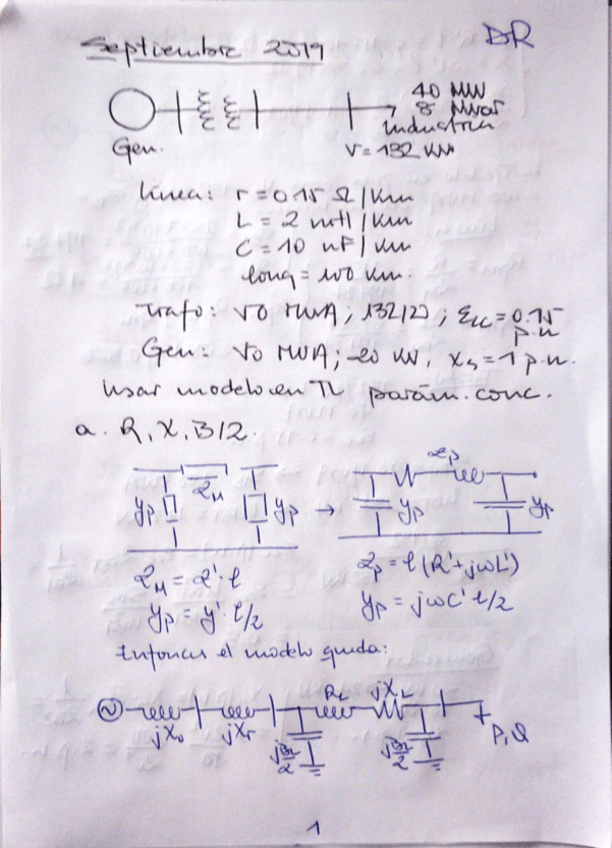 Septiembre 2019
DR
40 MW
8 Mvar
industria
Gen.
V = 132 kV
línea: r = 0.15 Ω/km
L = 2 mH/km
C = 10 nF/km
long = 100 km.
Trafo: 50 MVA; 132/20; εcc = 0.15 p.u
Gen: 50 MVA; 20 kV, Xs = 1 p.u.
Usar modelo en π parám. conc.
a. R, X, B/2.
yp ZM yp → Zp yp yp
ZM = Z'·l
Zp = l(R'+jωL')
yp = y'·l/2
yp = jωC' l/2
Entonces el modelo queda:
RL jXL
jXs jXT jB/2 jB/2 P,Q
1